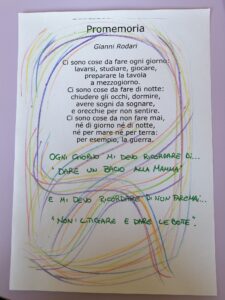 Promemoria
Gianni Rodari
Ci sono cose da fare ogni giorno:
lavarsi, studiare, giocare,
preparare la tavola
a mezzogiorno.
Ci sono cose da fare di notte:
chiudere gli occhi, dormire,
avere sogni da sognare,
e orecchie per non sentire.
Ci sono cose da non fare mai,
né di giorno né di notte,
né per mare né per terra:
per esempio, la guerra.
OGNI GIORNO MI DEVO RICORDARE DI...
"DARE UN BACIO ALLA MAMMA"
E MI DEVO RICORDARE DI NON FARE MAI...
"NON LITIGARE E DARE LE BOTTE".